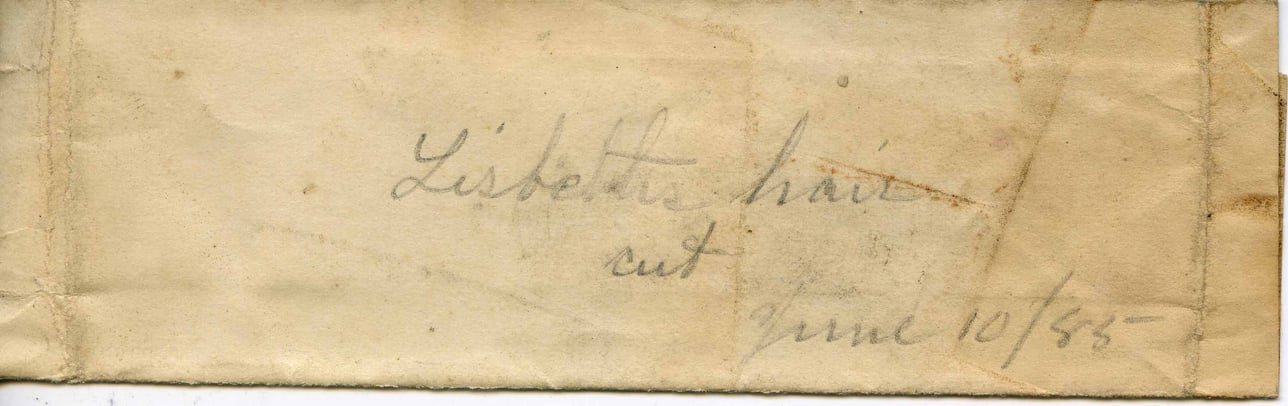 Lisbeths hair
cut
June 10/85